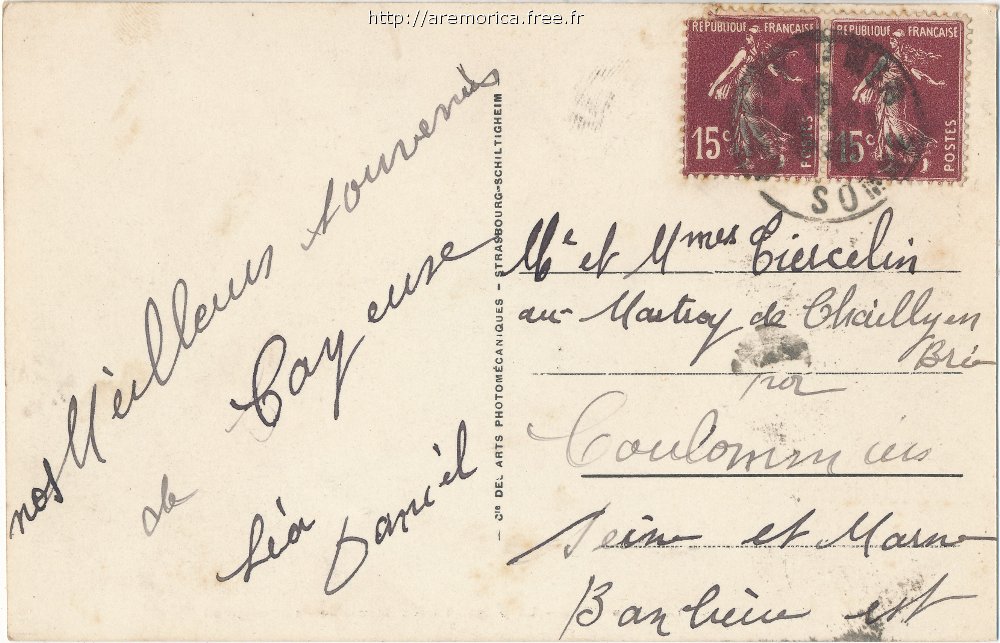 http://aremorica.free.fr
REPUBLIQUE FRANÇAISE
15c
POSTES
REPUBLIQUE FRANÇAISE
15c
POSTES
SOMME
nos Meilleurs souvenirs
de Cayeuse
Léa Daniel
CIE DES ARTS PHOTOMÉCANIQUES - STRASBOURG-SCHILTIGHEIM
Mr et Mmes Tiercelin
au Martroy de Chailly en
Brie
par
Coulommiers
Seine et Marne
Banlieue est